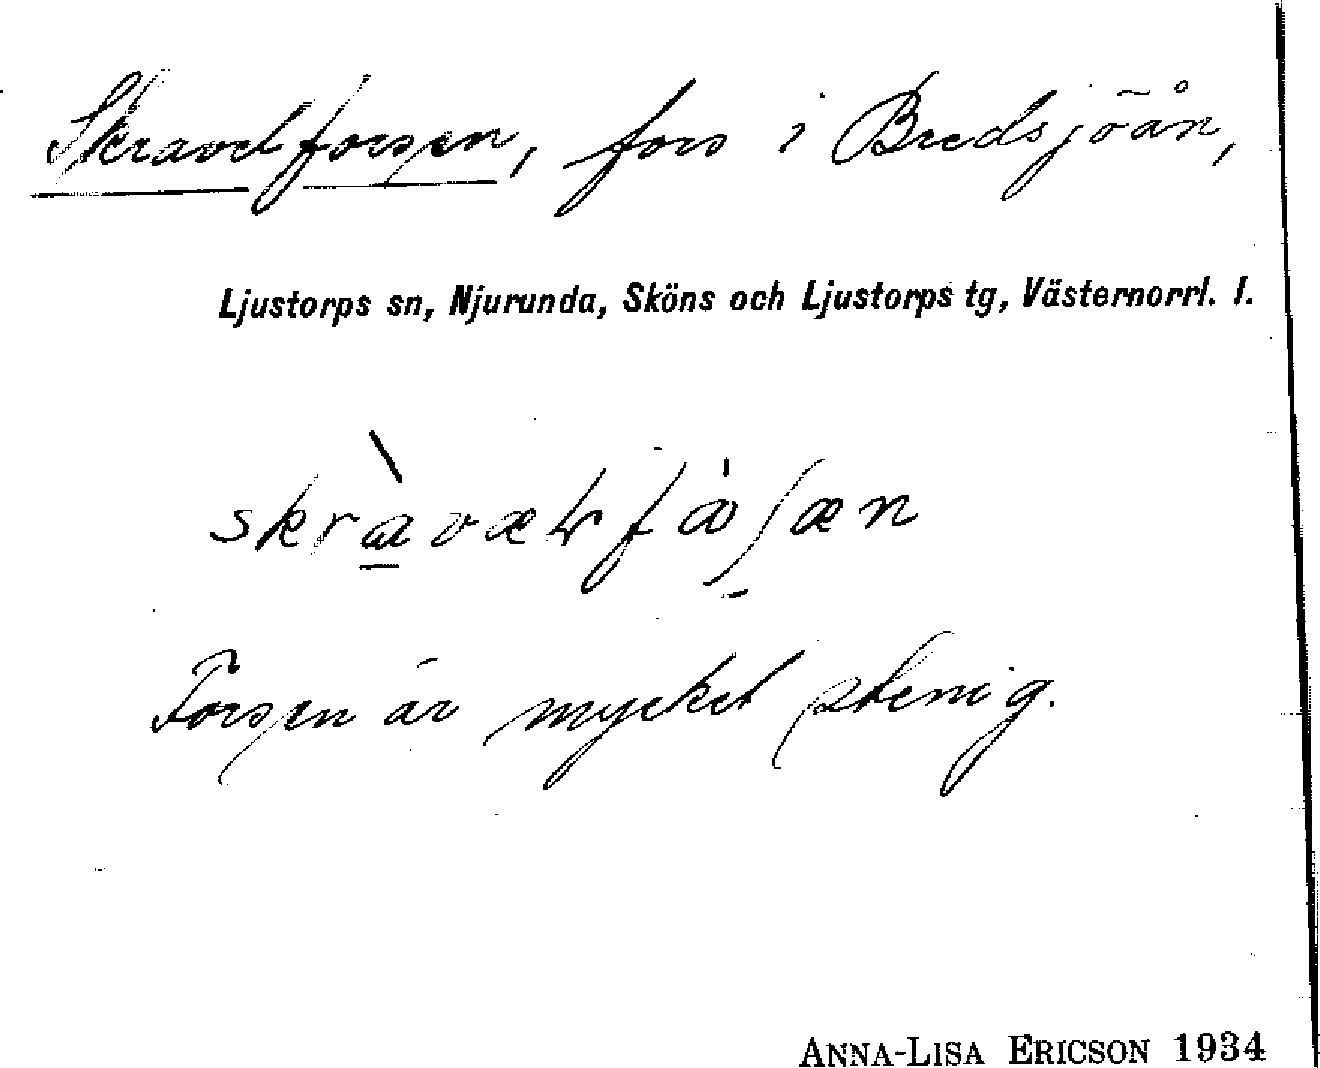 Skravelforsen, fors i Bredsjöån,
Ljustorps sn, Njurunda, Sköns och Ljustorps tg, Västernorrl. l.
Forsen är mycket stenig.
ANNA-LISA ERICSON 1934